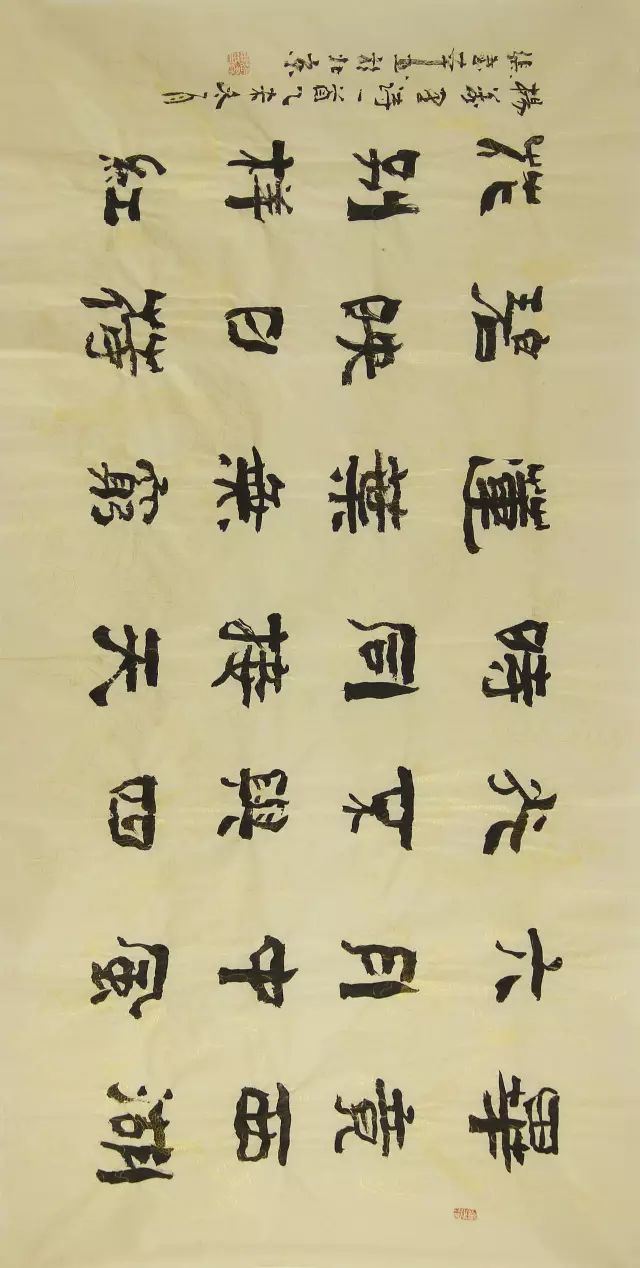 畢竟西湖
六月中風
光不與四
時同接天
蓮葉無窮
碧映日荷
花別樣紅
楊萬里詩一首乙未月
於北京